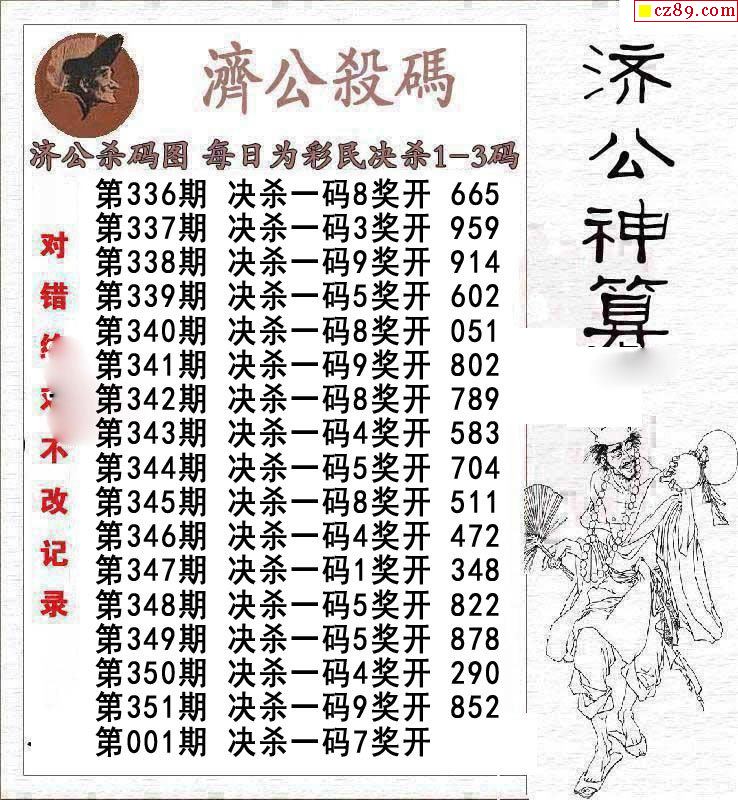 cz89.com
濟公殺碼
济公杀码图 每日为彩民决杀1-3码
第336期 决杀一码8奖开 665
第337期 决杀一码3奖开 959
第338期 决杀一码9奖开 914
第339期 决杀一码5奖开 602
第340期 决杀一码8奖开 051
第341期 决杀一码9奖开 802
第342期 决杀一码8奖开 789
第343期 决杀一码4奖开 583
第344期 决杀一码5奖开 704
第345期 决杀一码8奖开 511
第346期 决杀一码4奖开 472
第347期 决杀一码1奖开 348
第348期 决杀一码5奖开 822
第349期 决杀一码5奖开 878
第350期 决杀一码4奖开 290
第351期 决杀一码9奖开 852
第001期 决杀一码7奖开
对错
不改记录
济公神算